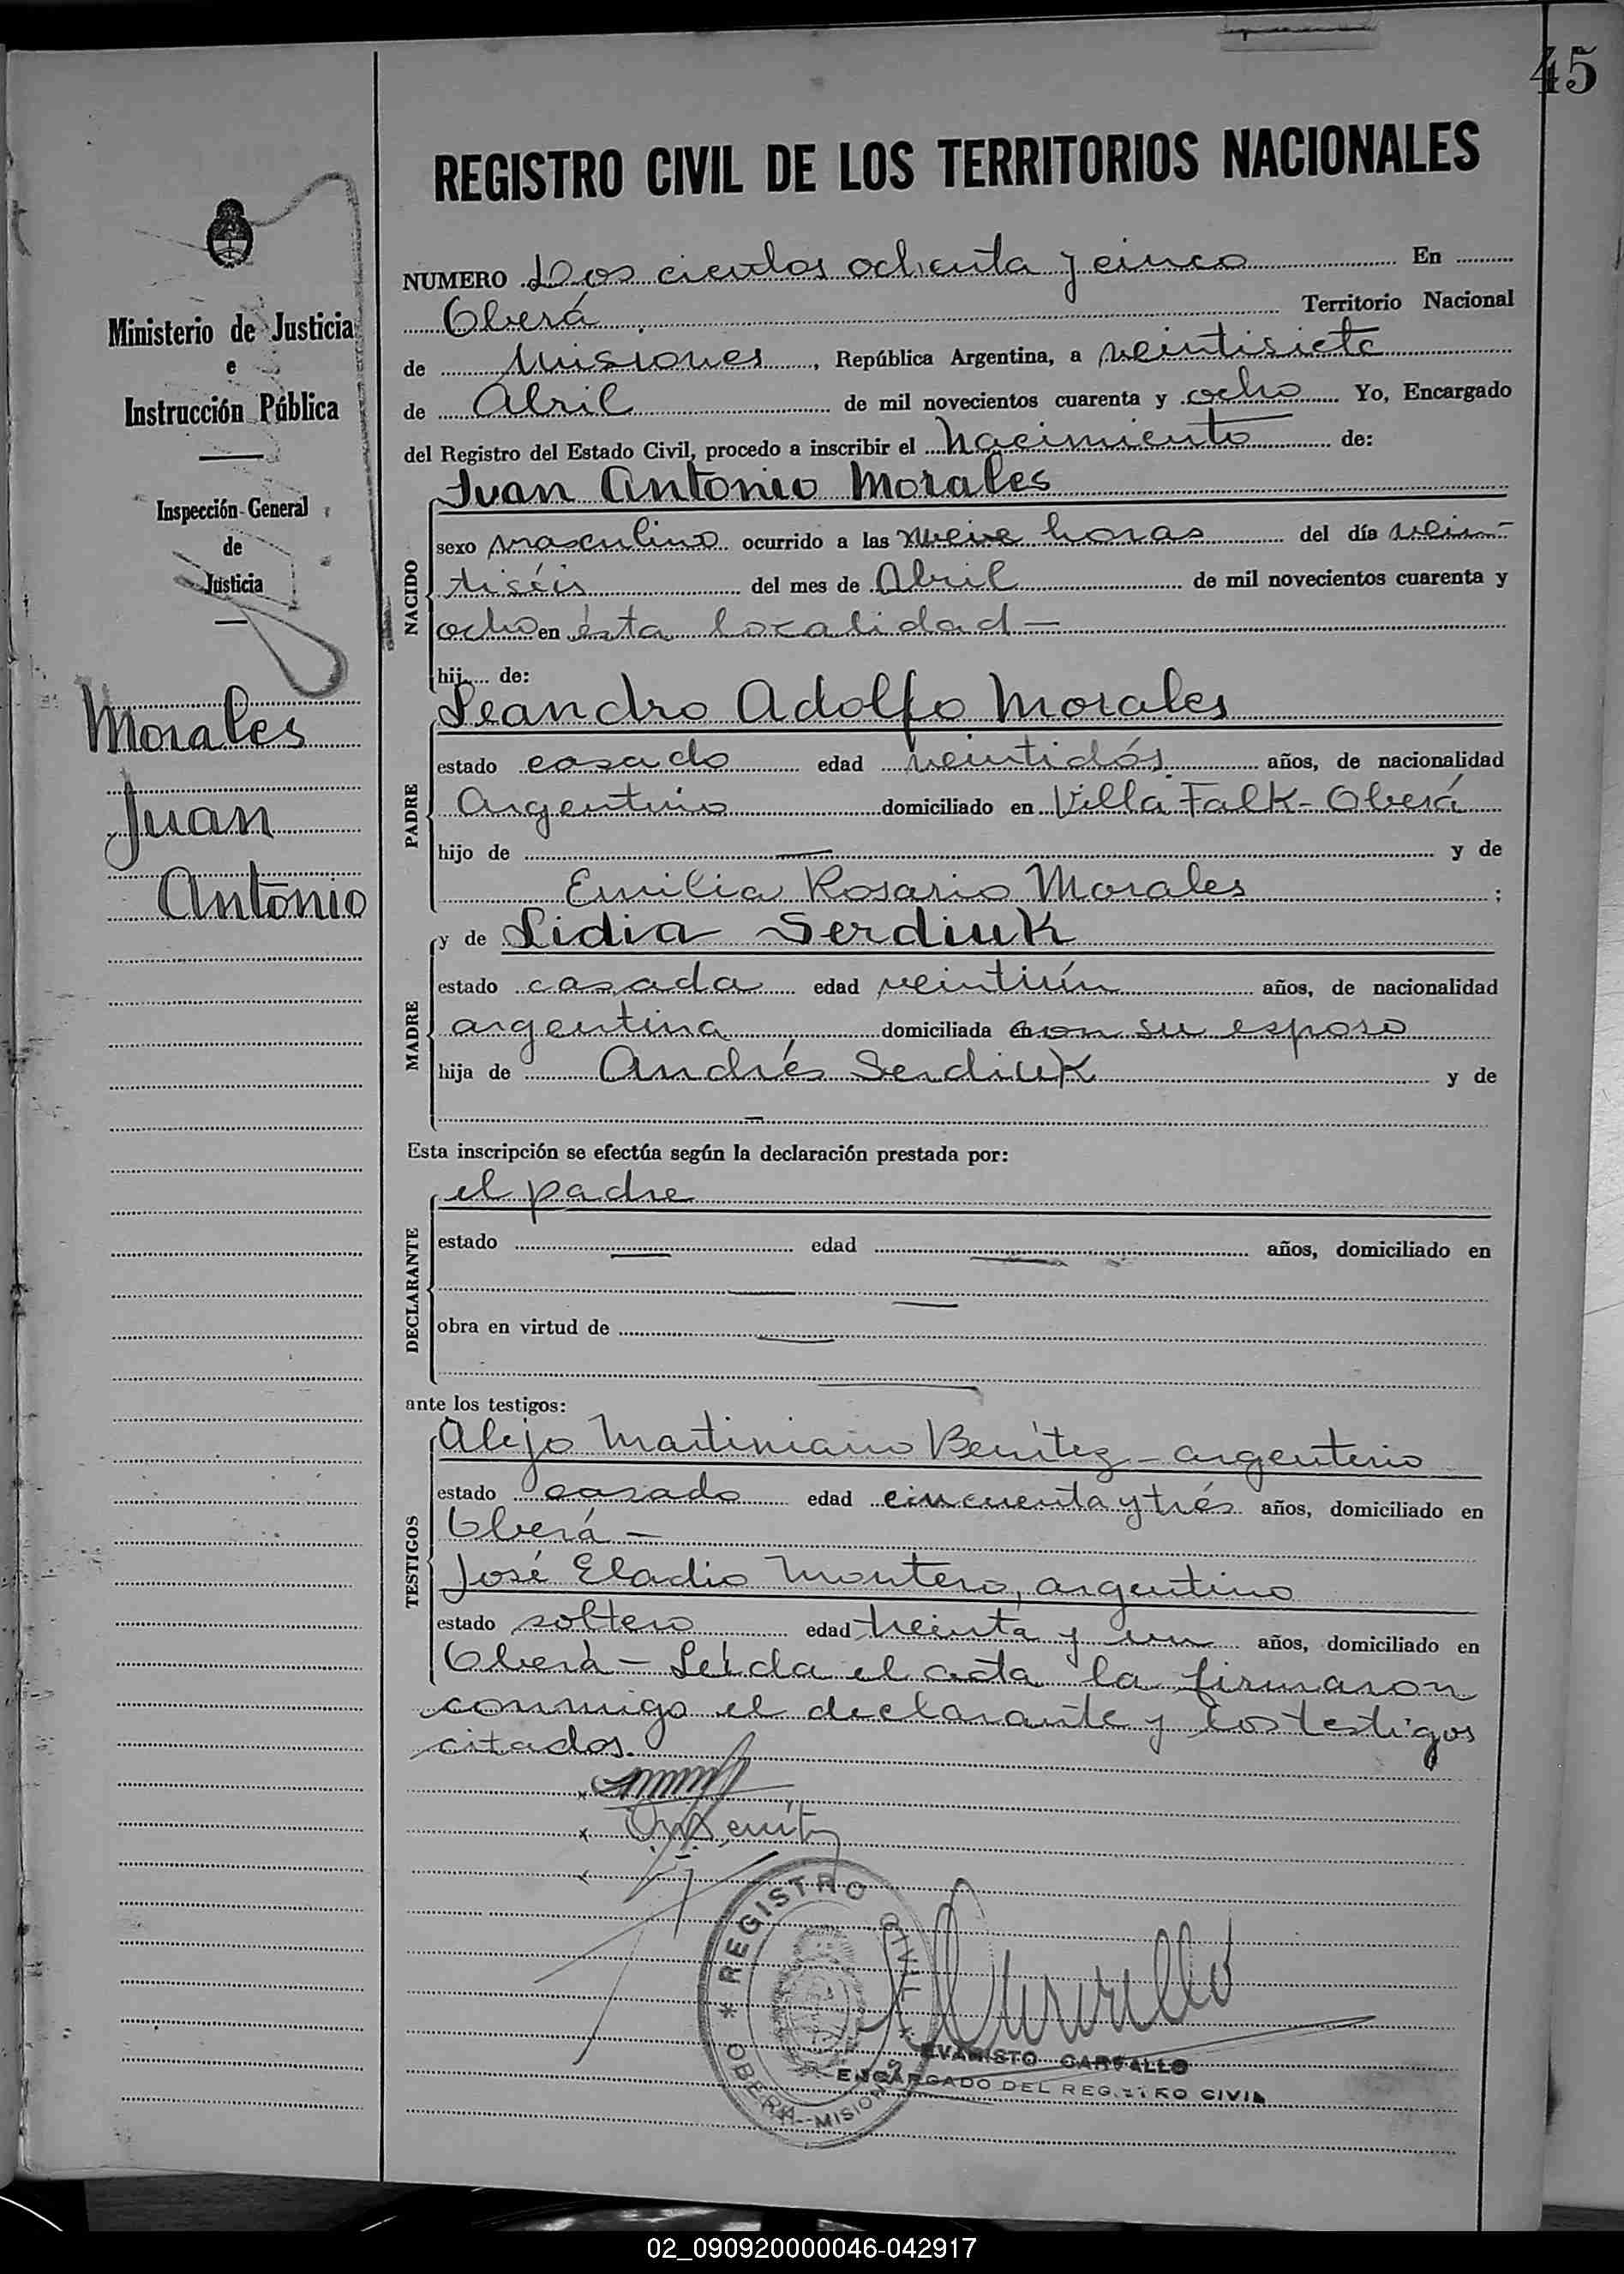 45
REGISTRO CIVIL DE LOS TERRITORIOS NACIONALES
Ministerio de Justicia
e
Instrucción Pública
Inspección General
de
Justicia
Morales
Juan
Antonio
NUMERO Dos cientos ochenta y cinco En
Oberá Territorio Nacional
de Misiones, República Argentina, a veintisiete
de Abril de mil novecientos cuarenta y ocho Yo, Encargado
del Registro del Estado Civil, procedo a inscribir el nacimiento de:
NACIDO
Juan Antonio Morales
sexo masculino ocurrido a las nueve horas del día vein-
tiséis del mes de Abril de mil novecientos cuarenta y
ocho en ésta localidad—
hij de:
PADRE
Leandro Adolfo Morales
estado casado edad veintidós años, de nacionalidad
Argentino domiciliado en Villa Falk - Oberá
hijo de — y de
Emilia Rosario Morales ;
MADRE
y de Lidia Serdiuk
estado casada edad veintiún años, de nacionalidad
argentina domiciliada en con su esposo
hija de Andrés Serdiuk y de
—
Esta inscripción se efectúa según la declaración prestada por:
DECLARANTE
el padre
estado — edad — años, domiciliado en
—
obra en virtud de —
—
ante los testigos:
TESTIGOS
Alejo Martiniano Benítez - argentino
estado casado edad cincuenta y trés años, domiciliado en
Oberá —
José Eladio Montero, argentino
estado soltero edad treinta y un años, domiciliado en
Oberá — Leída el acta la firmaron
conmigo el declarante y los testigos
citados.
REGISTRO CIVIL
OBERA - MISIONES
EVARISTO CARVALLO
ENCARGADO DEL REGISTRO CIVIL
02_090920000046-042917